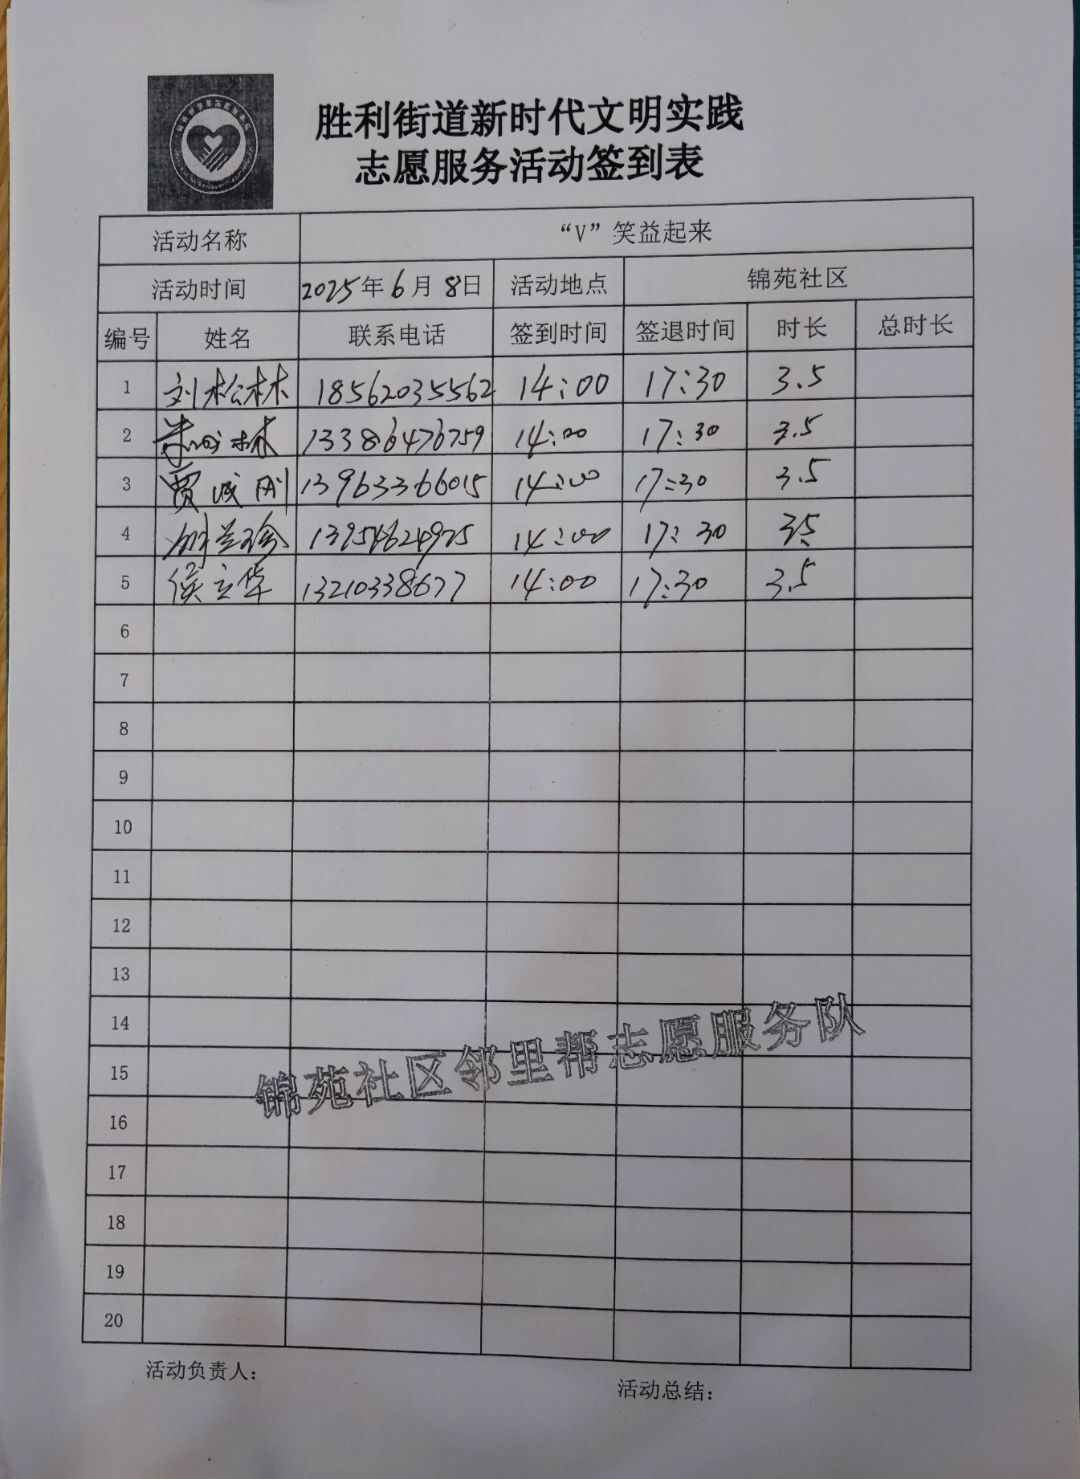 胜利街道新时代文明实践
志愿服务活动签到表
活动名称 “V”笑益起来
活动时间 2025年6月8日 活动地点 锦苑社区
编号 姓名 联系电话 签到时间 签退时间 时长 总时长
1 刘松林 18562035562 14:00 17:30 3.5
2 林 13386476759 14:00 17:30 3.5
3 贾成刚 13963366015 14:00 17:30 3.5
4 13954624975 14:00 17:30 3.5
5 侯立华 13210338677 14:00 17:30 3.5
6
7
8
9
10
11
12
13
14
15
16
17
18
19
20
锦苑社区邻里帮志愿服务队
活动负责人:
活动总结: